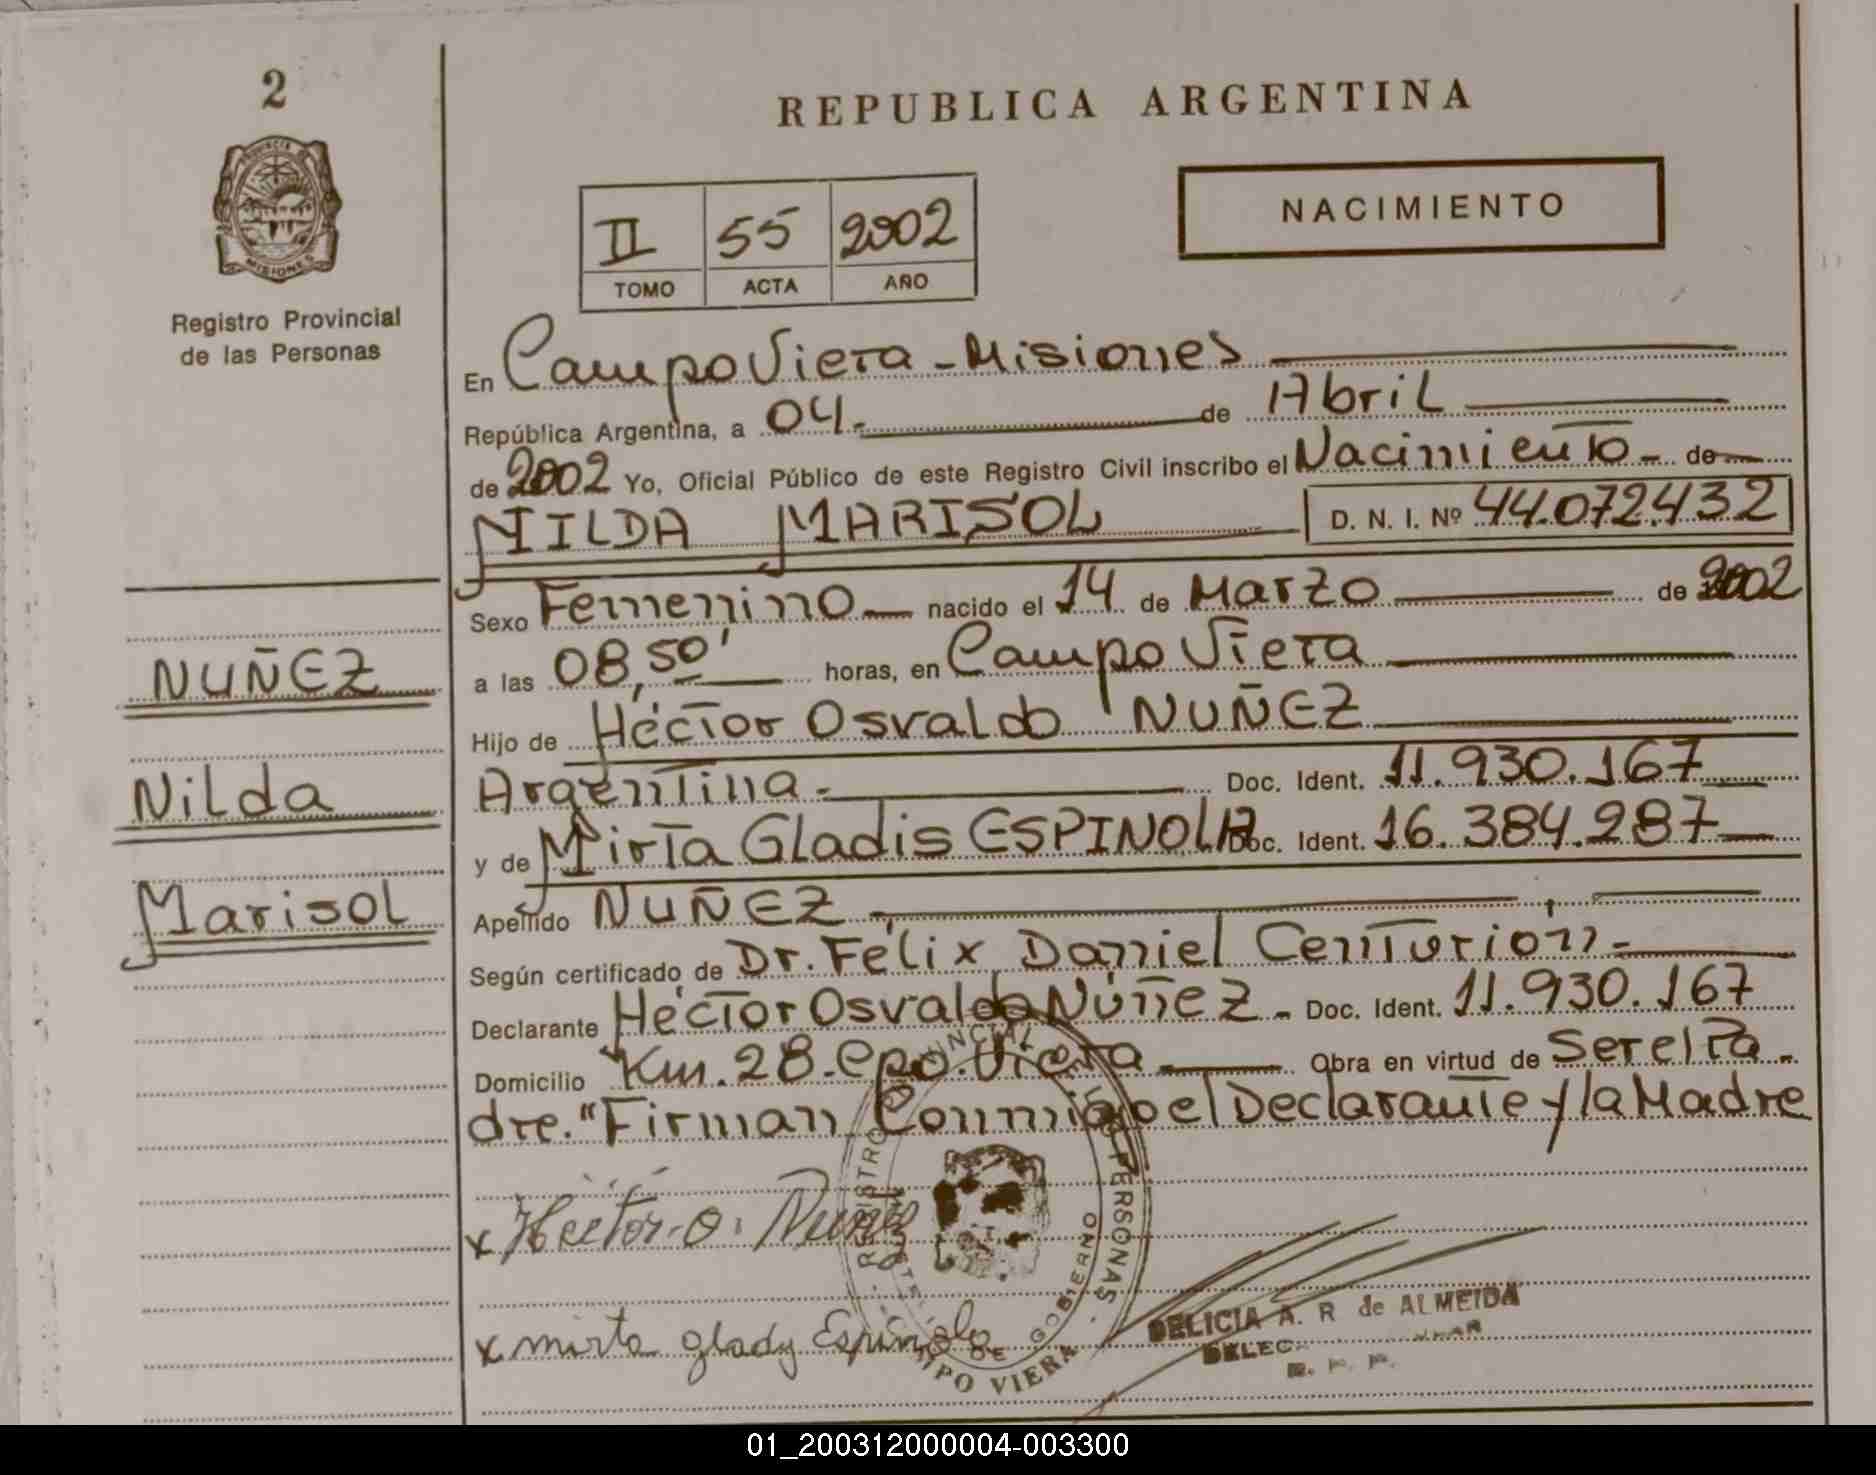 2
REPUBLICA ARGENTINA
PROVINCIA DE
MISIONES
Registro Provincial
de las Personas
II 55 2002
TOMO ACTA AÑO
NACIMIENTO
En Campo Viera - Misiones
República Argentina, a 04.- de Abril
de 2002 Yo, Oficial Público de este Registro Civil inscribo el Nacimiento - de
NILDA MARISOL D. N. I. Nº 44.072.432
Sexo Femenino nacido el 14 de Marzo de 2002
a las 08,50' horas, en Campo Viera
Hijo de Héctor Osvaldo NUÑEZ
Argentina.- Doc. Ident. 11.930.167
y de Mirta Gladis ESPINOLA Doc. Ident. 16.384.287
Apellido NUÑEZ
Según certificado de Dr. Félix Daniel Centurión.-
Declarante Héctor Osvaldo Núñez - Doc. Ident. 11.930.167
Domicilio Km. 28. Cpo. Viera Obra en virtud de Ser el Pa-
dre." Firman Conmigo el Declarante y la Madre
NUÑEZ
Nilda
Marisol
x Hector O. Nuñez
x mirta glady Espinola
REGISTRO PERSONAS
DE GOBIERNO
CAMPO VIERA
DELICIA A. R de ALMEIDA
01_200312000004-003300